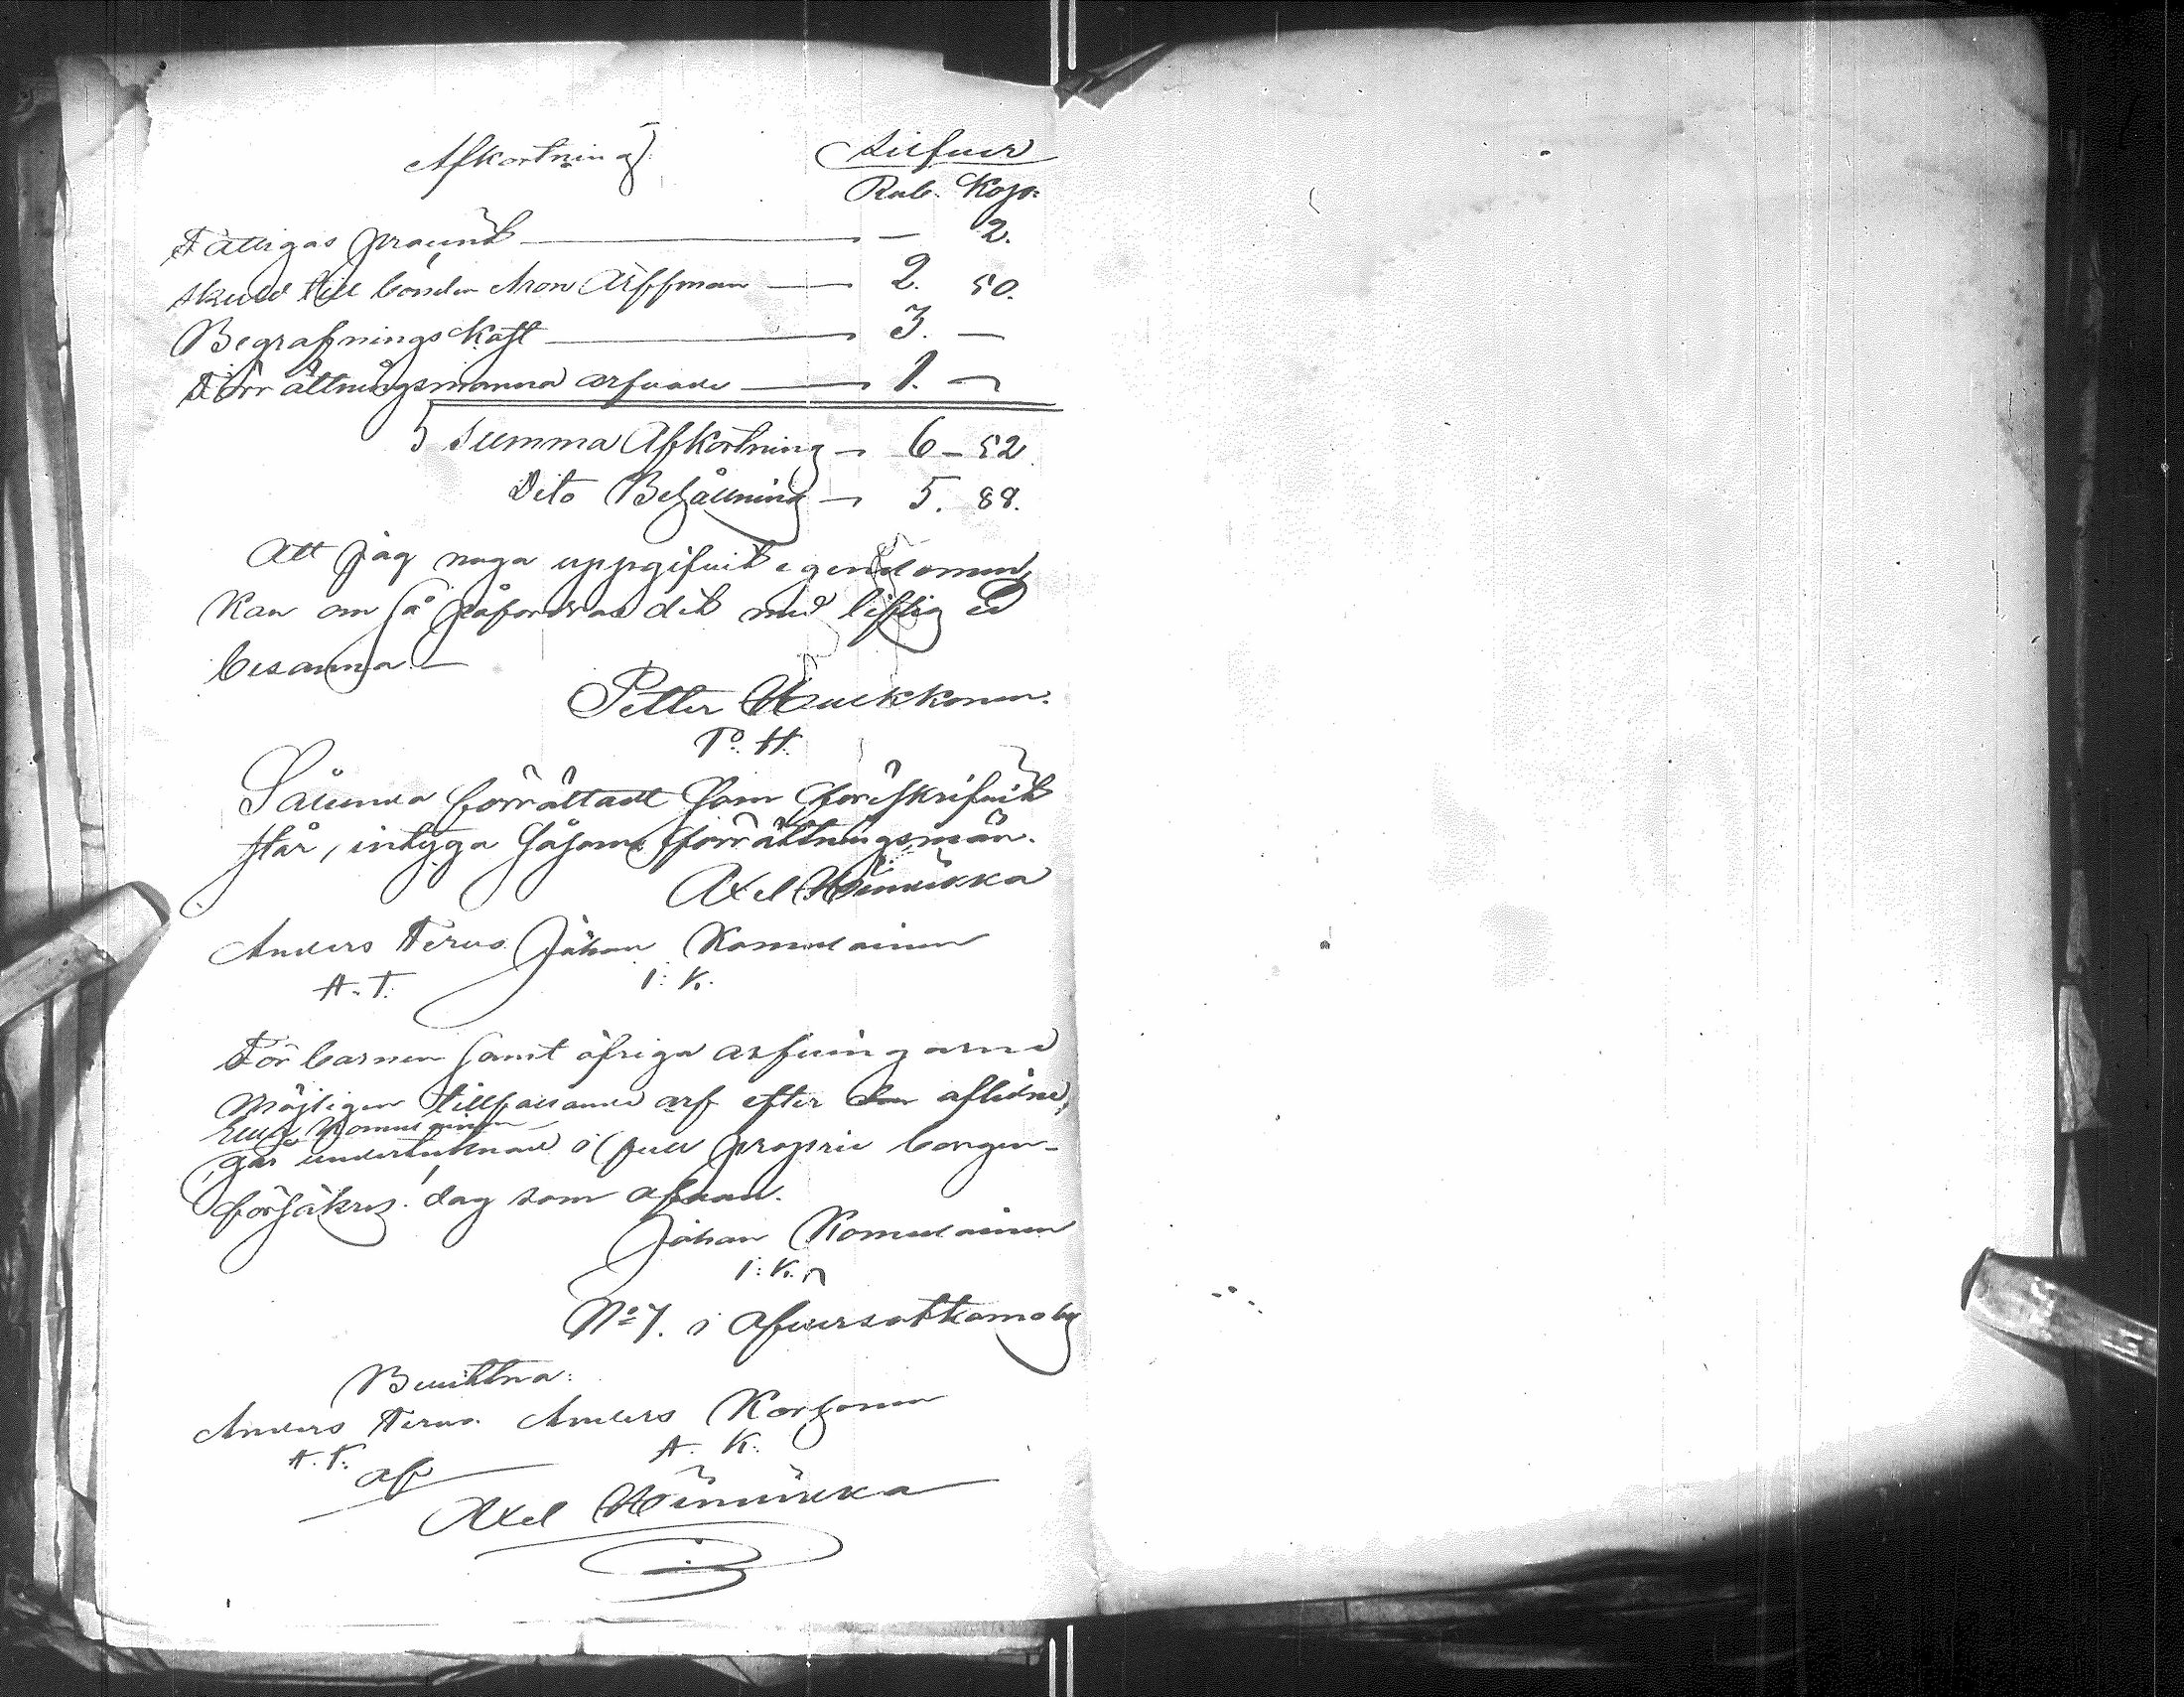 Afkortning: Silfver
Rub. Kop:
Fattigas procent — — 2.
skuld till bonden Aron Arffman — 2. 50.
Begrafnings kost — 3. —
Förrättningsmanna arfvode — 1. —
Summa Afkortning — 6 — 52
Dito Behållning — 5. 88.
Att jag noga uppgifvit egendomen,
kan om så påfordras det med liflig ed
besanna. —
Petter Huukkonen.
P. H.
Sålunda förrättadt som föreskrifvit
står, intyga såsom förrättningsmän.
Axel
Anders Tervo Johan Komulainen
A. T. I: K.
För barnen samt öfriga arfvingarne
Möjligen tillfallande arf efter aflidne,
Komulainen
går undertecknad i full proprie borgen-
försäkras. dag som ofvan.
Johan Komulainen
I: K.
No 7. i by
Bevittna:
Anders Tervo Anders Korhonen
A. T. A. K.
af
Axel